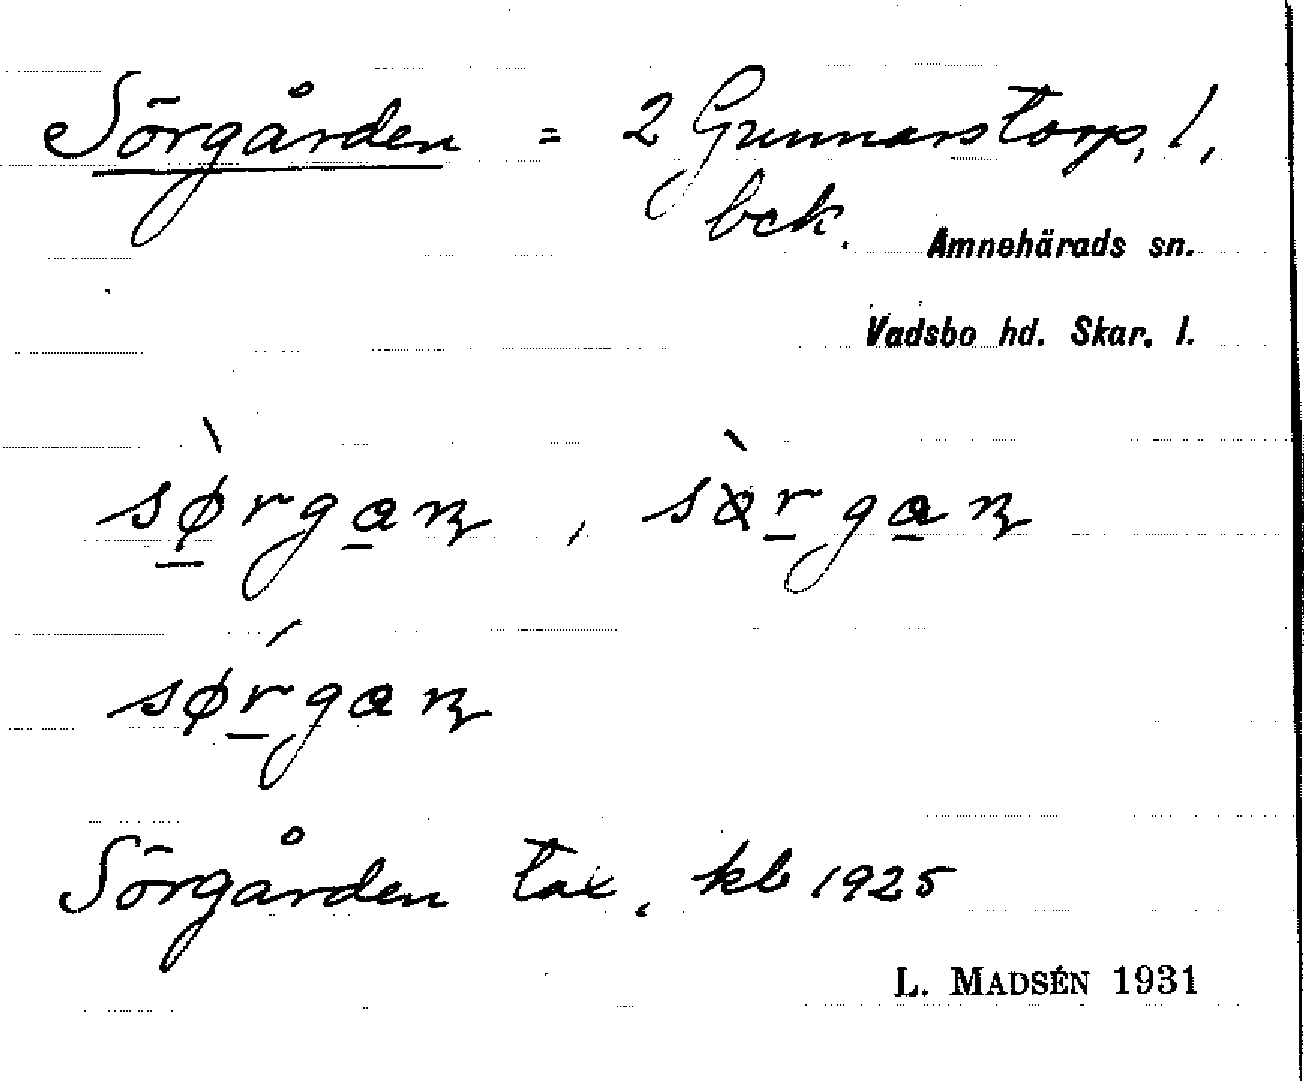 Sörgården = 2 Gunnarstorp, 1,
bck.
Amnehärads sn.
Vadsbo hd. Skar. l.
sø̀rgan, sàrgan
sørgan
Sörgården tax, kb 1925
L. MADSÉN 1931